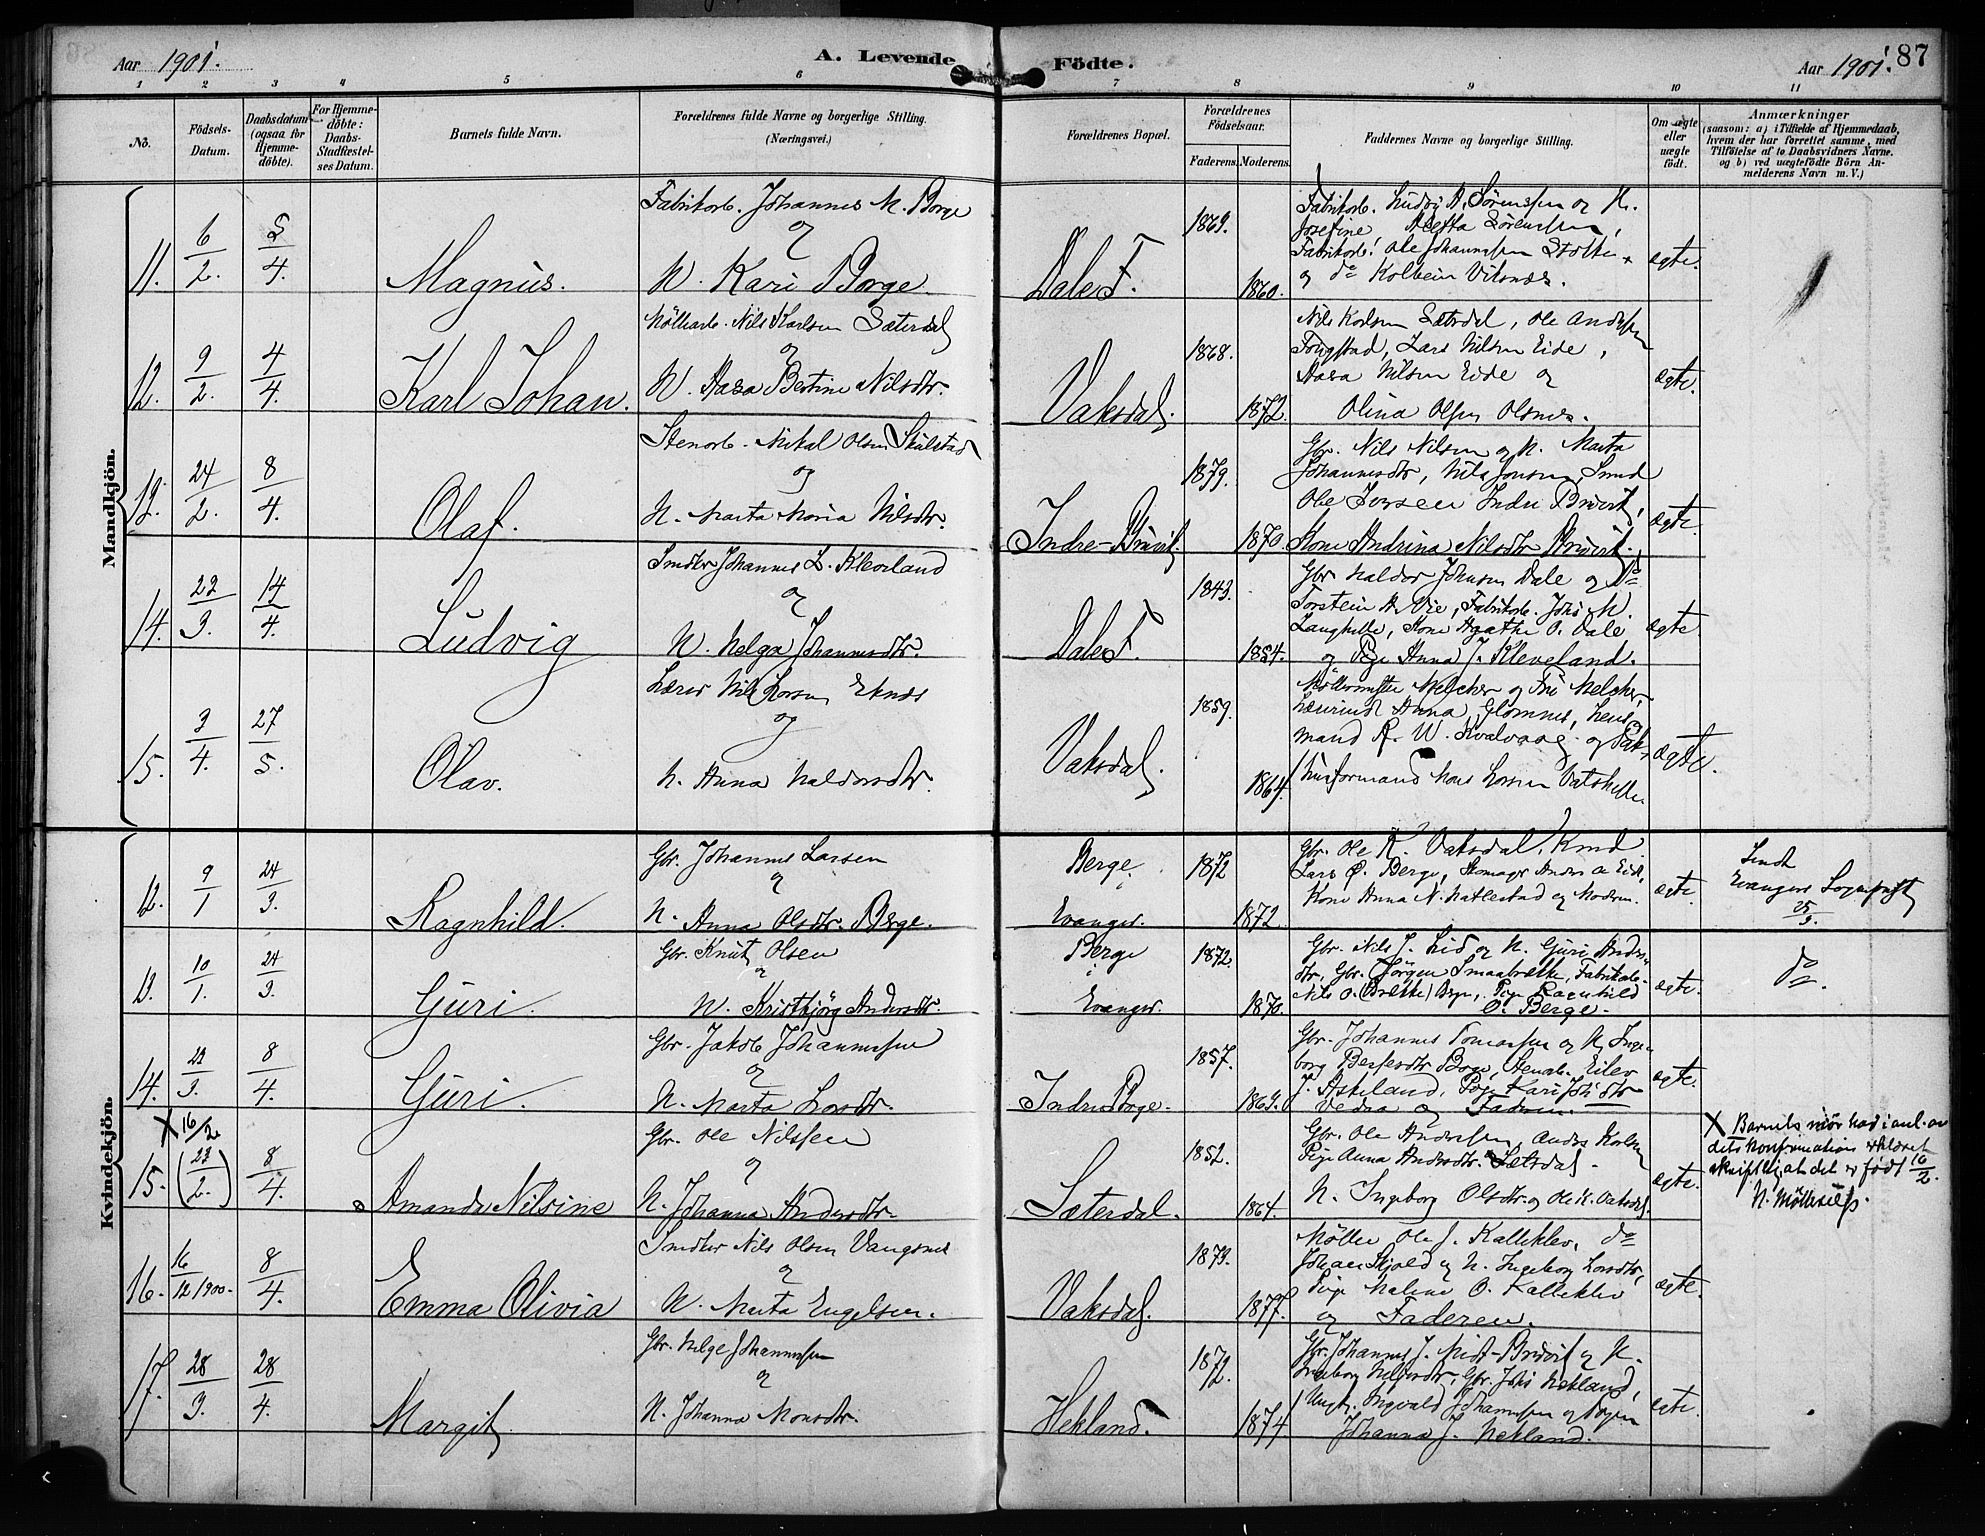 Aar 1901.
A. Levende
Födte.
Aar 1901.
87
1 2 3 4 5 6 7 8 9 10 11
No.
Födsels-Datum.
Daabsdatum (ogsaa for Hjemmedöbte).
For Hjemmedöbte: Daabs-Stadfæstelses Datum.
Barnets fulde Navn.
Forældrenes fulde Navne og borgerlige Stilling. (Næringsvei.)
Forældrenes Bopæl.
Forældrenes Födselsaar.
Faderens. Moderens.
Faddernes Navne og borgerlige Stilling.
Om ægte eller uægte födt.
Anmærkninger
(saasom: a) i Tilfælde af Hjemmedaab, hvem der har forrettet samme, med Tilföielse af to Daabsvidners Navne. og b) ved uægtefödte Börn Anmelderens Navn m. V.)
Mandkjön.
11. 6/2. 5/4. Magnus.
Fabrikarb. Johannes M. Borge
og
H. Kari Borge
Dale F. 1869. 1860.
Fabrikarb. Ludvig A. Sörenssen og H.
Josefine Sörenssen,
Fabrikarb. Ole Johannessen
og do Kolbein Viksnæs.
ægte.
12. 9/2. 4/4. Karl Johan.
Möllearb. Nils Karlsen Sæterdal
og
H. Aasa Bertine Nilsdtr.
Vaksdal. 1868. 1872.
Nils Karlsen Sætrdal, Ole Andersen
Fougstad, Lars Nilsen Eide,
Aasa Nilsen Eide og
Olina Olsen Olsnes.
ægte.
13. 24/2. 8/4. Olaf.
Stenarb. Mikal Olsen Skulstad
og
H. Marta Maria Nilsdtr.
Indre-Bruvik. 1879. 1870.
Gbr. Nils Nilsen og H. Marta
Johannesdtr, Nils Jonsen, Smed
Ole Iversen Indre Bruvik,
Kone Andrina Nilsdtr Bruvik.
ægte.
14. 23/3. 14/4. Ludvig
Smdbr Johannes L. Kleveland
og
H. Helga Johannesdtr.
Dale F. 1843. 1854.
Gbr Haldor Johnsen Dale og Do
Torstein A. Vie, Fabrikarb. Johs M.
Langhelle, Kone Agathe O. Dale
og Pige Anna J. Kleveland.
ægte.
15. 3/4. 27/5. Olav.
Lærer Nils Larsen Eknæs
og
H. Anna Haldorsdtr.
Vaksdal. 1859. 1864.
Möllermester Melcher og Fru Melcher,
Lærerinde Anna Glomnes, Lens-
mand R. W. Kvalvaag og Pak-
husformand Mons Larsen Vatshelle
ægte.
Kvindekjön.
12. 9/1 24/3. Ragnhild.
Gbr. Johannes Larsen
og
H. Anna Olsdtr. Berge.
Berge Evanger. 1872 1872.
Gbr. Ole K. Vaksdal, Kmd
Lars O. Berge, Skomager Anders A. Eide,
Kone Anna N. Hatlestad og Modren.
ægte.
Sendt
Evanger Sogneprest
25/3.
13. 10/1. 24/3. Guri.
Gbr. Knut Olsen
og
H. Kristbjörg Andersdtr.
Berge i Evanger. 1872. 1870.
Gbr. Nils J. Lid og H. Guri Anders-
dtr, Gbr. Jörgen Smaabrække, Fabrikarb.
Nils O. (Brække) Berge, Pige Ragnhild
O. Berge.
ægte.
do.
14. 23/3. 8/4. Guri.
Gbr. Jakob Johannessen
og
H. Marta Larsdtr.
Indre Borge. 1857. 1869.
Gbr. Johannes Tomassen og H. Inge-
borg Borge, Stenarb. Eilev
J. Askeland, Pige Kari Johs dtr
Vedaa og Fadren.
ægte.
X 16/2
15. (23/2.) 8/4. Amanda Nilsine
Gbr. Ole Nilssen
og
H. Johanna Andersdtr.
Sæterdal. 1852. 1864.
Gbr. Ole Anderssen, Anders Karlsen
Pige Anna Andersdtr. Sætrdal.
H. Ingeborg Olsdtr. og Ole K. Vaksdal.
ægte.
X Barnets mor har i anl. av
dets konfirmation erklæret
skriftlig at det er födt 16/2.
16. 16/12 1900. 8/4. Emma Olivia
Smdbr Nils Olsen Vangsnes
og
H. Marta Engelsen.
Vaksdal. 1873. 1877.
Möller Ole J. Kalleklev, do
Johan Skjold og H. Ingeborg Larsdtr,
Pige Malene O. Kalleklev
og Faderen.
ægte.
17. 28/3. 28/4. Margit
Gbr. Helge Johannessen
og
H. Johanna Monsdtr.
Hekland. 1872. 1874
Gbr. Johannes J. Midt-Bruvik og H.
Ingeborg Helgesdtr, Gbr. Johs Hekland,
Ungk. Ingvald Johannessen og Pigen
Johanna J. Hekland.
ægte.